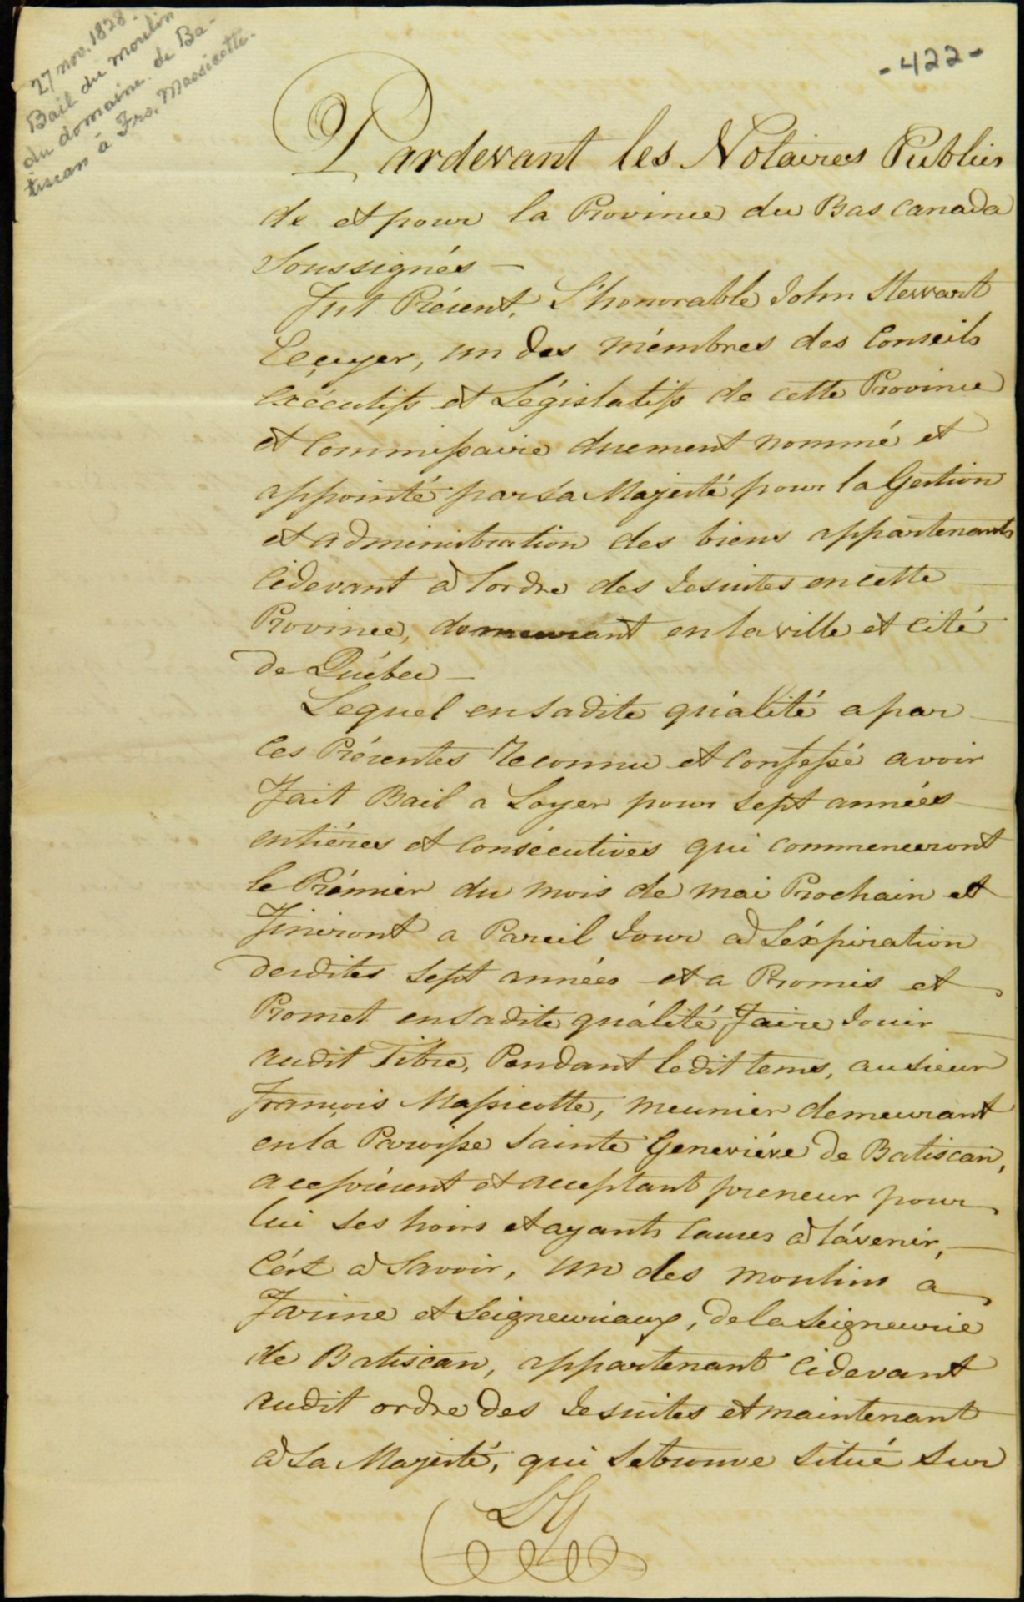 27 nov. 1828.
Bail du moulin
du domaine de Ba-
tiscan à Frs. Massicotte.
-422-
Pardevant les Notaires Publics
de et pour la Province du Bas Canada
Soussignés —
Fut Présent, L'honorable John Stewart
Ecuyer, un des mémbres des Conseils
exécutifs et Législatifs de cette Province
et Commissaire duement nommé et
appointé par sa Majesté pour la Gestion
et administration des biens appartenants
cidevant à l'ordre des Jesuites en cette
Province, demeurant en la ville et cité
de Québec —
Lequel en sadite quálité a par
ces Présentes reconnu et confessé avoir
fait Bail a Loyer pour sept années
entiéres et consécutives qui commenceront
le Prémier du mois de mai Prochain et
finiront a Pareil Jour à L'éxpiration
desdites sept années et a Promis et
Promet en sadite quálité, faire Jouir
audit Titre, Pendant ledit tems, au sieur
François Massicotte, meunier demeurant
en la Paroisse Sainte Geneviéve de Batiscan,
a ce présent et acceptant preneur pour
lui ses hoirs et ayants causes à l'ávenir,
C'ést à Savoir, un des moulins a
farine et Seigneuriaux, de la Seigneurie
de Batiscan, appartenant cidevant
audit ordre des Jesuites et maintenant
à Sa Majesté, qui se trouve situé sur